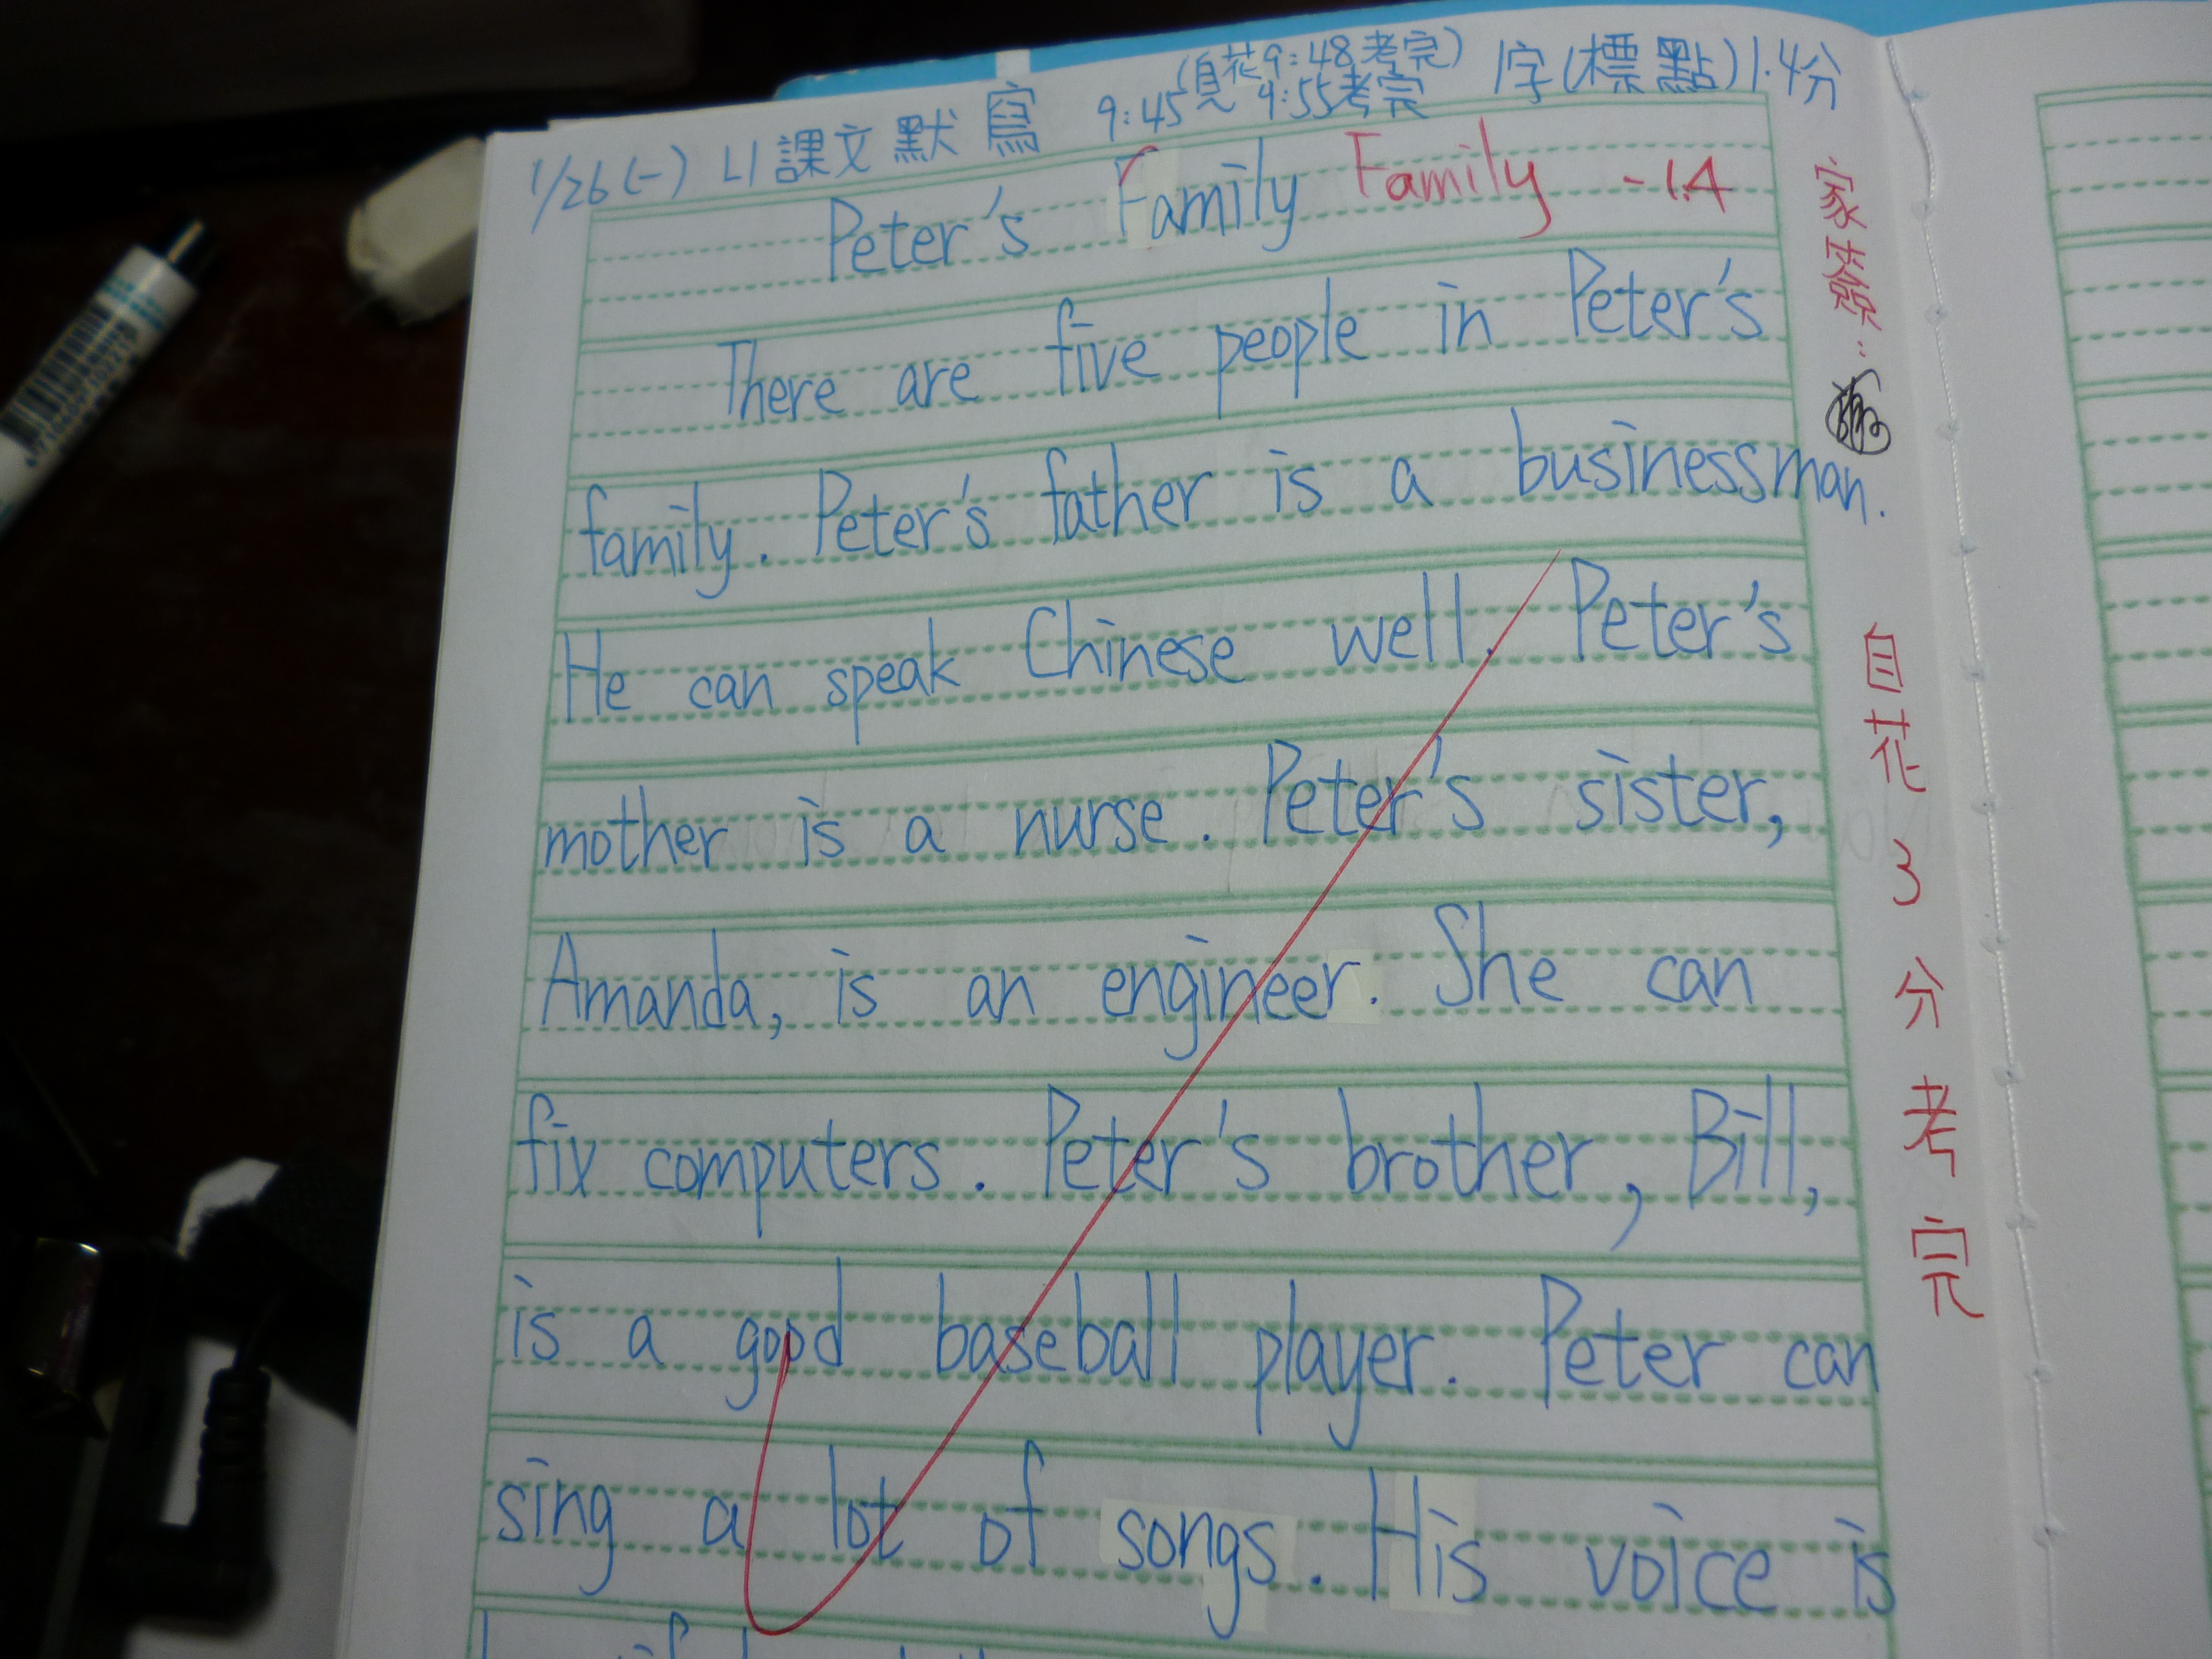 (貝花9:48考完)
1/26(一) L1課文默寫 9:45見 9:55考完 1字(標點)1.4分
Peter's Family Family -1.4
There are five people in Peter's
family. Peter's father is a businessman.
He can speak Chinese well. Peter's
mother is a nurse. Peter's sister,
Amanda, is an engineer. She can
fix computers. Peter's brother, Bill,
is a good baseball player. Peter can
sing a lot of songs. His voice is
家簽:
自花3分考完